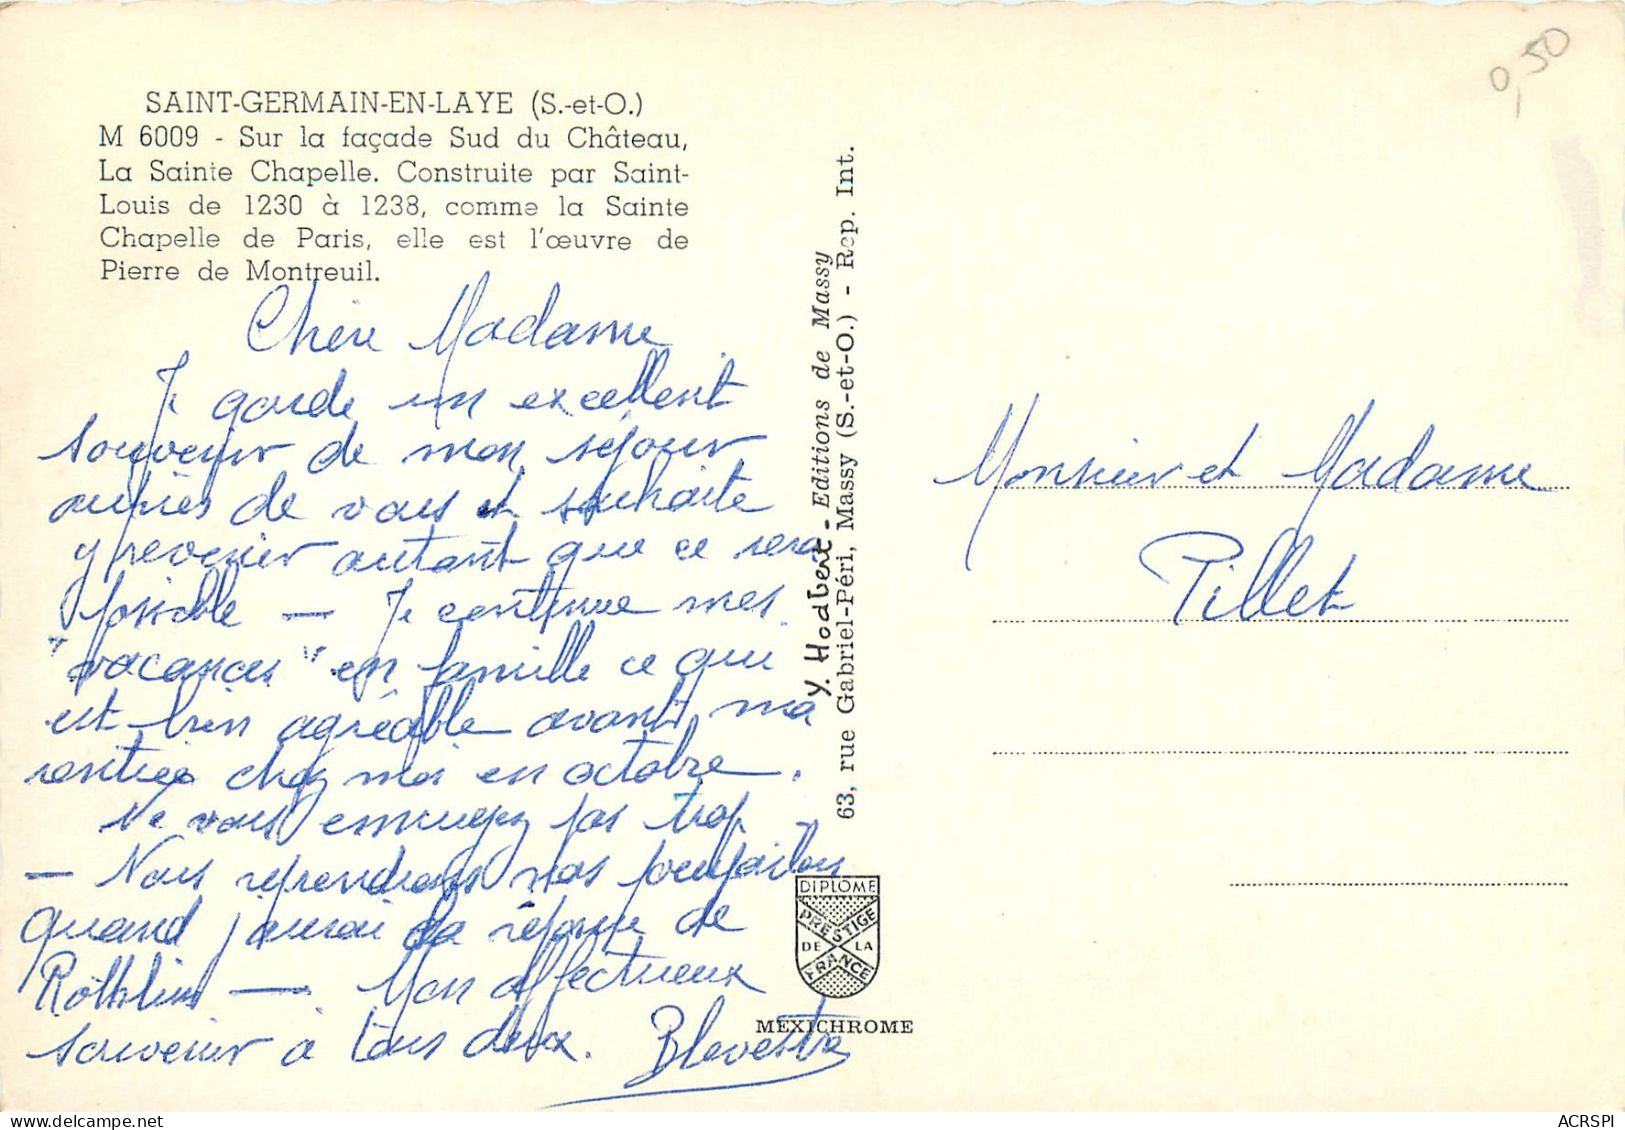 0,50
SAINT-GERMAIN-EN-LAYE (S.-et-O.)
M 6009 - Sur la façade Sud du Château,
La Sainte Chapelle. Construite par Saint-
Louis de 1230 à 1238, comme la Sainte
Chapelle de Paris, elle est l'œuvre de
Pierre de Montreuil.
Chère Madame
Je garde un excellent
souvenir de mon séjour
auprès de vous et souhaite
y revenir autant que ce sera
possible — Je continue mes
"vacances" en famille ce qui
est bien agréable avant ma
rentrée chez moi en octobre.
Ne vous ennuyez pas trop
— Nous reprendrons nos
quand j'aurai la réponse de
— Mon affectueux
souvenir à tous deux.
Y. Hodbert - Editions de Massy
63, rue Gabriel-Péri, Massy (S.-et-O.) - Rep. Int.
DIPLOME
PRESTIGE
DE LA
FRANCE
MEXICHROME
Monsieur et Madame
Pillet
ACRSPI